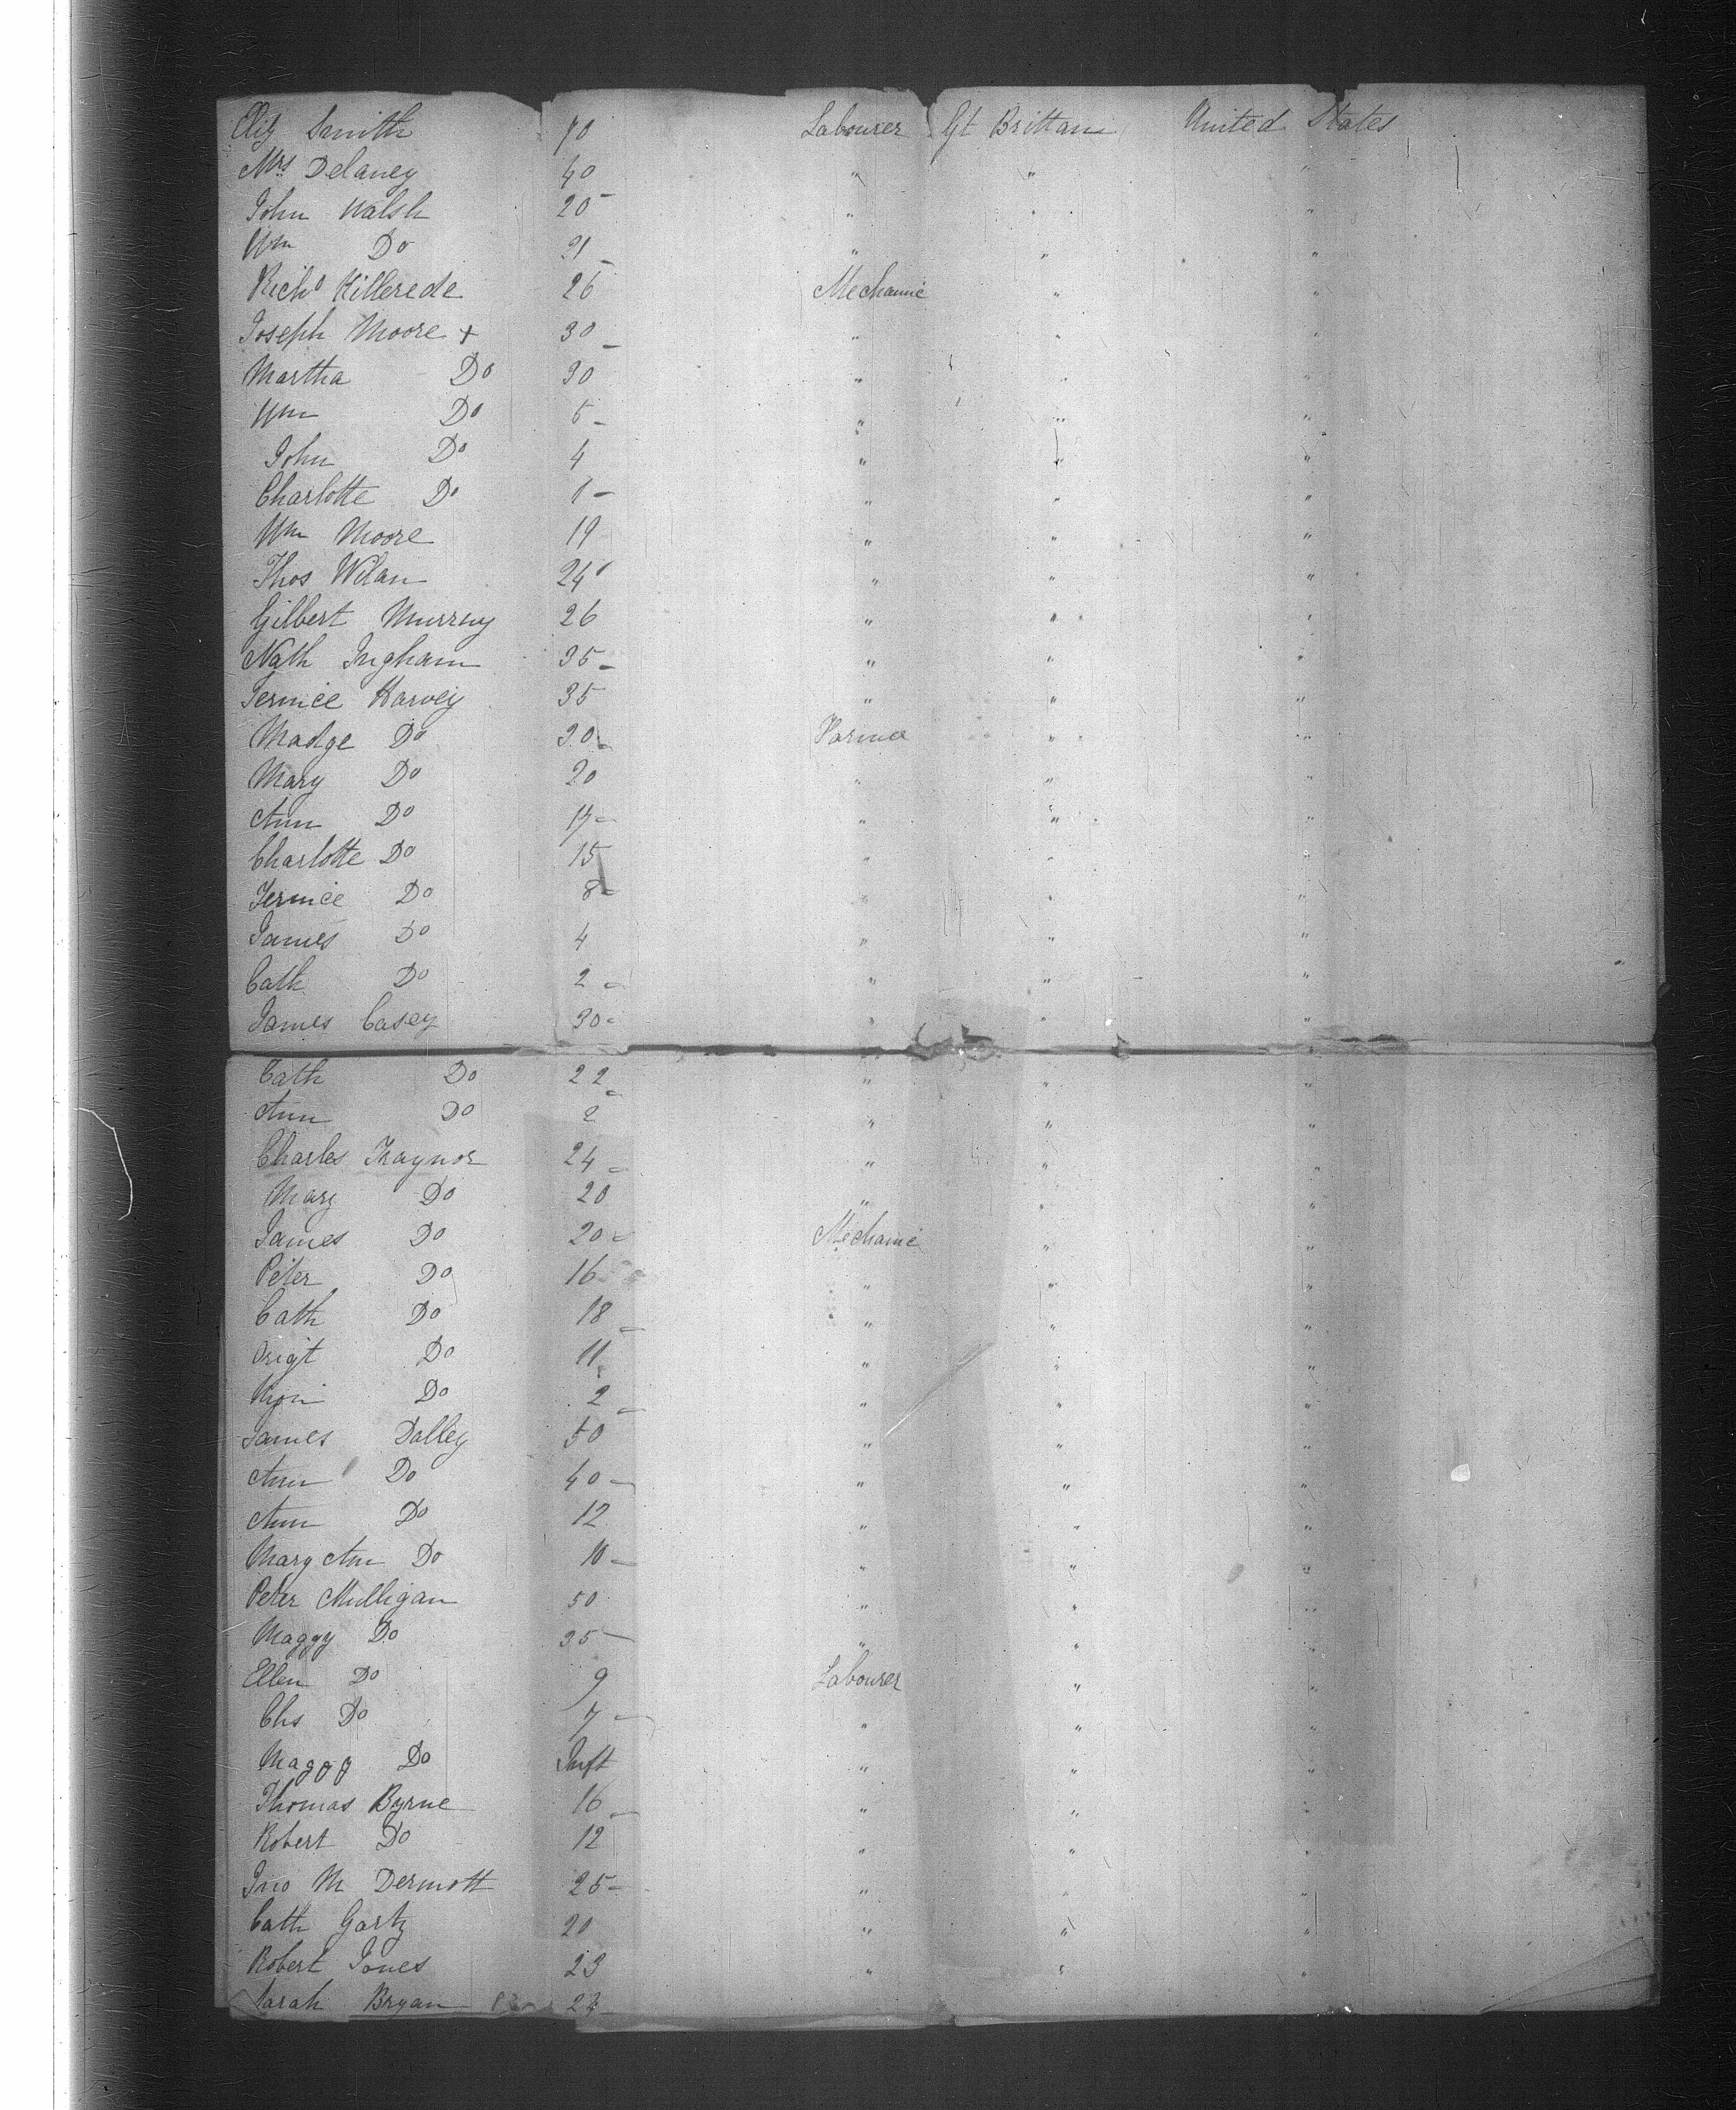 Eliz Smith 70 Labourer Gt Brittan United States
Mrs Delaney 40 " " "
John Walsh 20 " " "
Wm Do 21 " " "
Richd Killerede 26 Mechanic " "
Joseph Moore + 30 " " "
Martha Do 30 " " "
Wm Do 5 " " "
John Do 4 " " "
Charlotte Do 1 " " "
Wm Moore 19 " " "
Thos Wilan 24 " " "
Gilbert Murray 26 " " "
Nath Ingham 35 " " "
Ternice Harvey 35 " " "
Madge Do 30 Farmer " "
Mary Do 20 " " "
Ann Do 17 " " "
Charlotte Do 15 " " "
Ternice Do 8 " " "
James Do 4 " " "
Cath Do 2 " " "
James Casey 30 " " "
Cath Do 22 " " "
Ann Do 2 " " "
Charles Traynor 24 " " "
Mary Do 20 " " "
James Do 20 Mechanic " "
Peter Do 16 " " "
Cath Do 18 " " "
Brigt Do 11 " " "
Do 2 " " "
James Dalley 50 " " "
Ann Do 40 " " "
Ann Do 12 " " "
Mary Ann Do 10 " " "
Peter Mulligan 50 " " "
Maggy Do 35 " " "
Ellen Do 9 Labourer " "
Chs Do 7 " " "
Maggy Do Inft " " "
Thomas Byrne 16 " " "
Robert Do 12 " " "
Jno M Dermott 25 " " "
Cath Garty 20 " " "
Robert Jones 23 " " "
Sarah Bryan 24